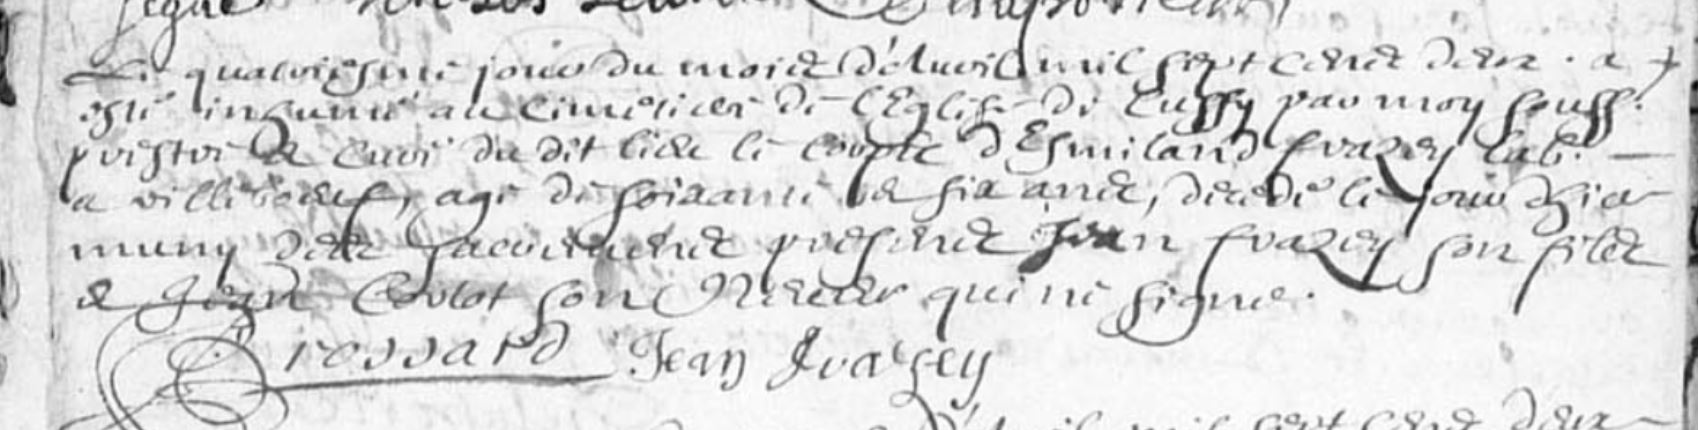 Le quatriesme jour du mois d'Auvil mil sept cens deux . a
esté inhumé au cimetiere de l'Eglise de Cussy par moy souss.
prestre & curé du dit lieu le corps d'Esmiland frazey lab.
a villeneuf, agé de soixante & six ans, decedé le jour d'hier
muny des sacremens presens Jean frazey son fils
& Jean Coulot son Neveu qui ne signe.
Brossard Jean frazey
d'Avril mil sept cens deux